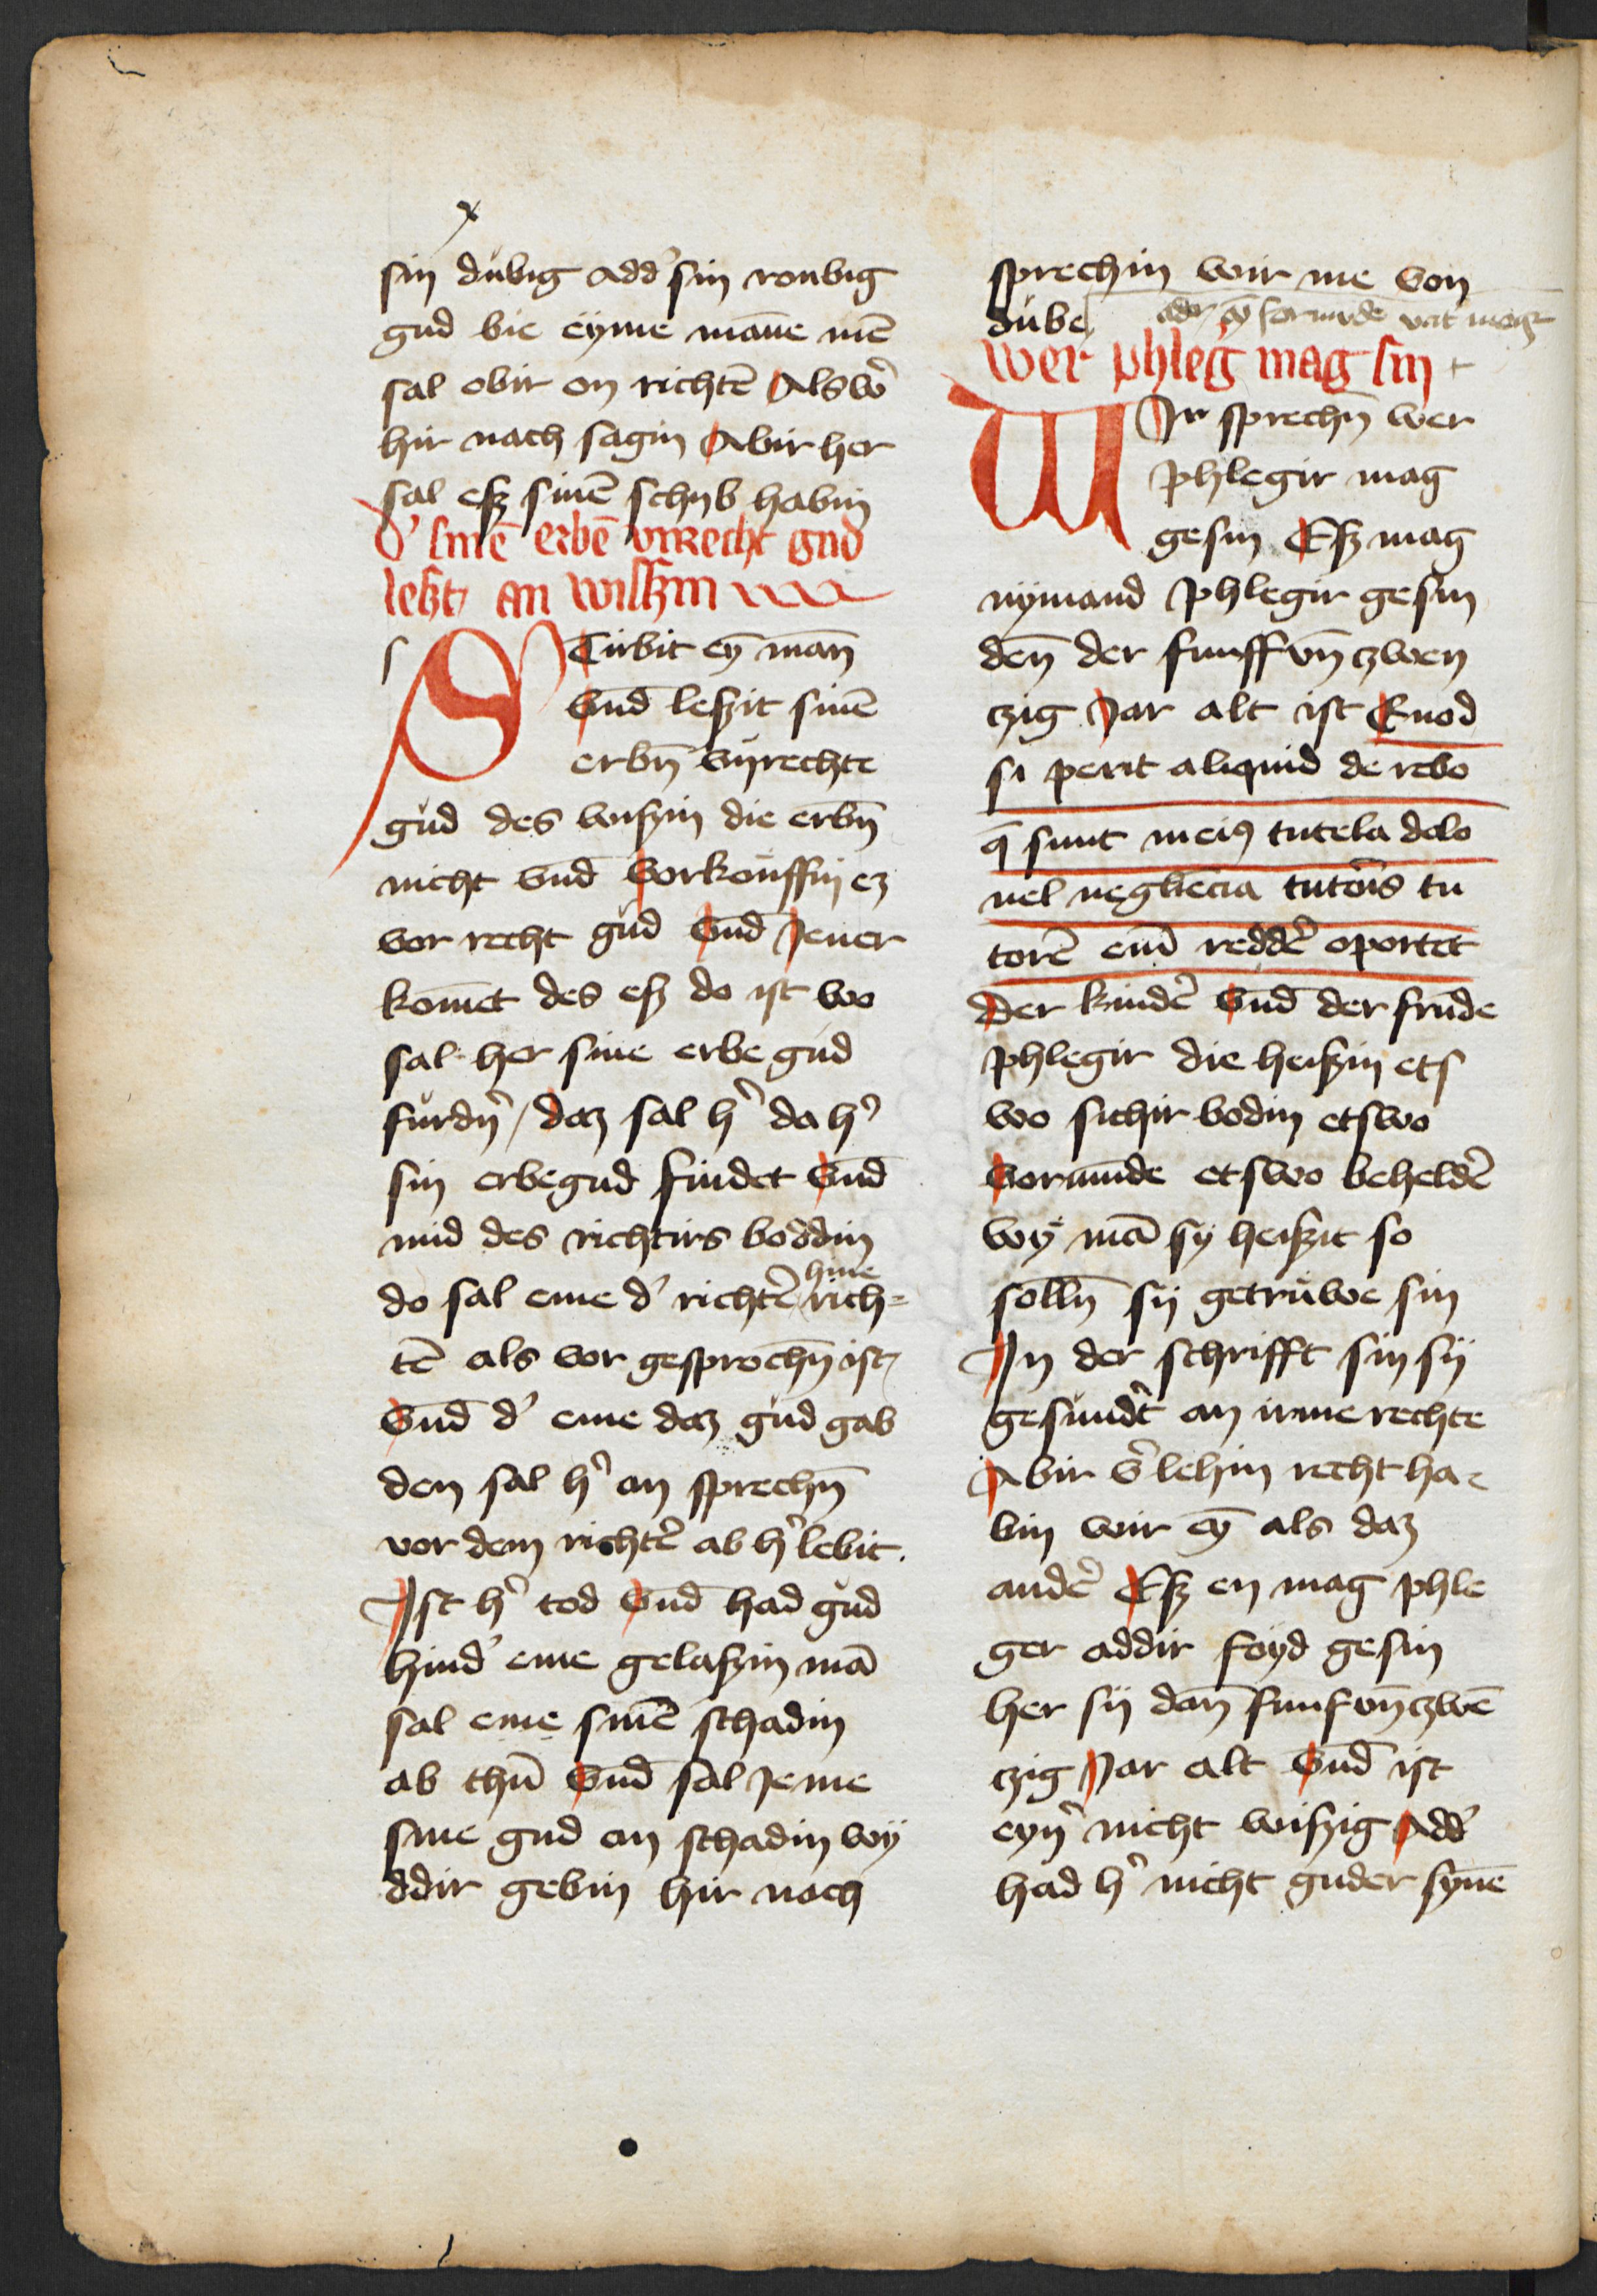 sin dubig add' sin roubig
gud bie eyme mane mē
sal obir on richtē Als w'
hir nach sagin Abir her
sal esz sinē schyb habin
d' sinē erbē vnrecht gud
leszt an wiszin
STirbit ey man
vnd leszit sinē
erbn̄ vnrechte
gud des wiszin die erbn̄
nicht vnd vorkouffin ez
vor recht gud vnd Jener
komet des esz do ist wo
sal her sine erbe gud
furdn' / daz sal h' da h'
sin erbegud findet vnd
mid des richtirs boddin
do sal eme d' richtē hine rich=
tē als vor gesprochn̄ ist /
vnd d' eme daz gud gab
den sal h' an sprechn̄
vor dem richt' ab h' lebit.
Ist h' tod vnd had gud
hind' eme gelaszin mā
sal eme sinē schadin
ab thū vnd sal Jeme
sine gud an schadin wy
ddir gebin hir nach
sprechin wir me von
dube
wer phleg mag sin
WIr sprechn̄ wer
phlegir mag
gesin Esz mag
nymand phlegir gesin
den̄ der funff vn̄ czwen
czig Jar alt ist Quod
si perit aliquid de rebo
q̄ sunt in ei9 tutela dolo
uel negliēcia tutoris tu
torē eni redd'e oportet
Der kind' vnd der frude
phlegir die heiszin ets
wo sichir bodin etswo
vormunde etswo beheldē
wy mā sy heiszit so
solln̄ sy getruwe sin
In der schrifft sin sy
gesundt an irme rechte
Abir v' lehin recht ha=
bin wir ey als daz
and' Esz en mag phle
ger addir foyd gesin
her sy dan̄ funf vn̄ czwē
czig Jar alt vnd ist
eyn' nicht wiszig Add'
had h' nicht guder synē